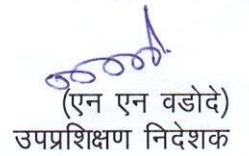 (एन एन वडोदे)
उपप्रशिक्षण निदेशक